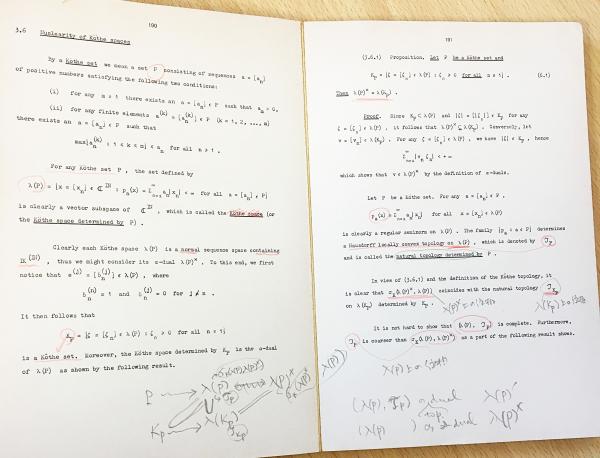 190
3.6 Nuclearity of Köthe spaces
By a Köthe set we mean a set P consisting of sequences a = [aₙ]
of positive numbers satisfying the following two conditions:
(i) for any n ≥ 1 there exists an a = [aₙ] ∈ P such that aₙ > 0,
(ii) for any finite elements a⁽ᵏ⁾ = [aₙ⁽ᵏ⁾] ∈ P (k = 1, 2, ..., m)
there exists an a = [aₙ] ∈ P such that
max{aₙ⁽ᵏ⁾ : 1 ≤ k ≤ m} ≤ aₙ for all n ≥ 1 .
For any Köthe set P , the set defined by
λ(P) = {x = [xₙ] ∈ ℂᴵᴺ : pₐ(x) = Σₙ₌₁^∞ aₙ|xₙ| < ∞ for all a = [aₙ] ∈ P}
is clearly a vector subspace of ℂᴵᴺ , which is called the Köthe space (or
the Köthe space determined by P) .
Clearly each Köthe space λ(P) is a normal sequence space containing
IK⁽ᴵᴺ⁾ , thus we might consider its α-dual λ(P)ˣ . To this end, we first
notice that e⁽ʲ⁾ = [δₙ⁽ʲ⁾] ∈ λ(P) , where
δₙ⁽ⁿ⁾ = 1 and δₙ⁽ʲ⁾ = 0 for j ≠ n .
It then follows that
K_P = {ζ = [ζₙ] ∈ λ(P) : ζₙ ≥ 0 for all n ≥ 1}
is a Köthe set. Moreover, the Köthe space determined by K_P is the α-dual
of λ(P) as shown by the following result.
P → λ(P) λ(P)ˣ
K_P → λ(K_P)
191
(3.6.1) Proposition. Let P be a Köthe set and
K_P = {ζ = [ζₙ] ∈ λ(P) : ζₙ ≥ 0 for all n ≥ 1} . (6.1)
Then λ(P)ˣ = λ(K_P) .
Proof. Since K_P ⊂ λ(P) and |ζ| = [|ζₙ|] ∈ K_P for any
ζ = [ζₙ] ∈ λ(P) , it follows that λ(P)ˣ ⊆ λ(K_P) . Conversely, let
v = [vₙ] ∈ λ(K_P) . For any ζ = [ζₙ] ∈ λ(P) , we have |ζ| ∈ K_P , hence
Σₙ₌₁^∞ |vₙ ζₙ| < +∞
which shows that v ∈ λ(P)ˣ by the definition of α-duals.
Let P be a Köthe set. For any a = [aₙ] ∈ P ,
pₐ(x) = Σₙ₌₁^∞ aₙ|xₙ| for all x = [xₙ] ∈ λ(P)
is clearly a regular seminorm on λ(P) . The family {pₐ : a ∈ P} determines
a Hausdorff locally convex topology on λ(P) , which is denoted by 𝒯_P
and is called the natural topology determined by P .
In view of (3.6.1) and the definition of the Köthe topology, it
is clear that σ_S(λ(P)ˣ, λ(P)) coincides with the natural topology
on λ(K_P) determined by K_P .
It is not hard to show that (λ(P), 𝒯_P) is complete. Furthermore,
𝒯_P is coarser than σ_S(λ(P), λ(P)ˣ) as a part of the following result shows.
(λ(P), 𝒯_P) dual λ(P)′
top.
(λ(P) ) dual λ(P)ˣ